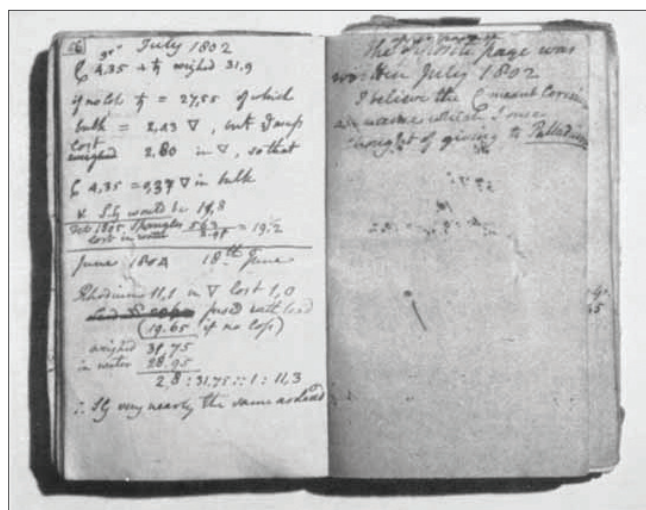 56 July 1802
C 4,35 + ♄ weighed 31,9
if no loss ♄ = 27,55 of which
bulk = 2,43 ∇, but
lost
weighed 2.80 in ∇, so that
C 4,35 = 0,37 ∇ in bulk
SG would be 11,8
1805. Spangles 563 = 19 1/2
lost in water
June 1804 18th June
Rhodium 11,1 in ∇ lost 1,0
fused with lead
(19.65 if no loss)
weighed 31,75
in water 28.95
2,8 : 31,75 :: 1 : 11,3
∴ SG very nearly the same as Lead
The opposite page was
written July 1802
I believe the C meant
a name which I once
thought of giving to Palladium